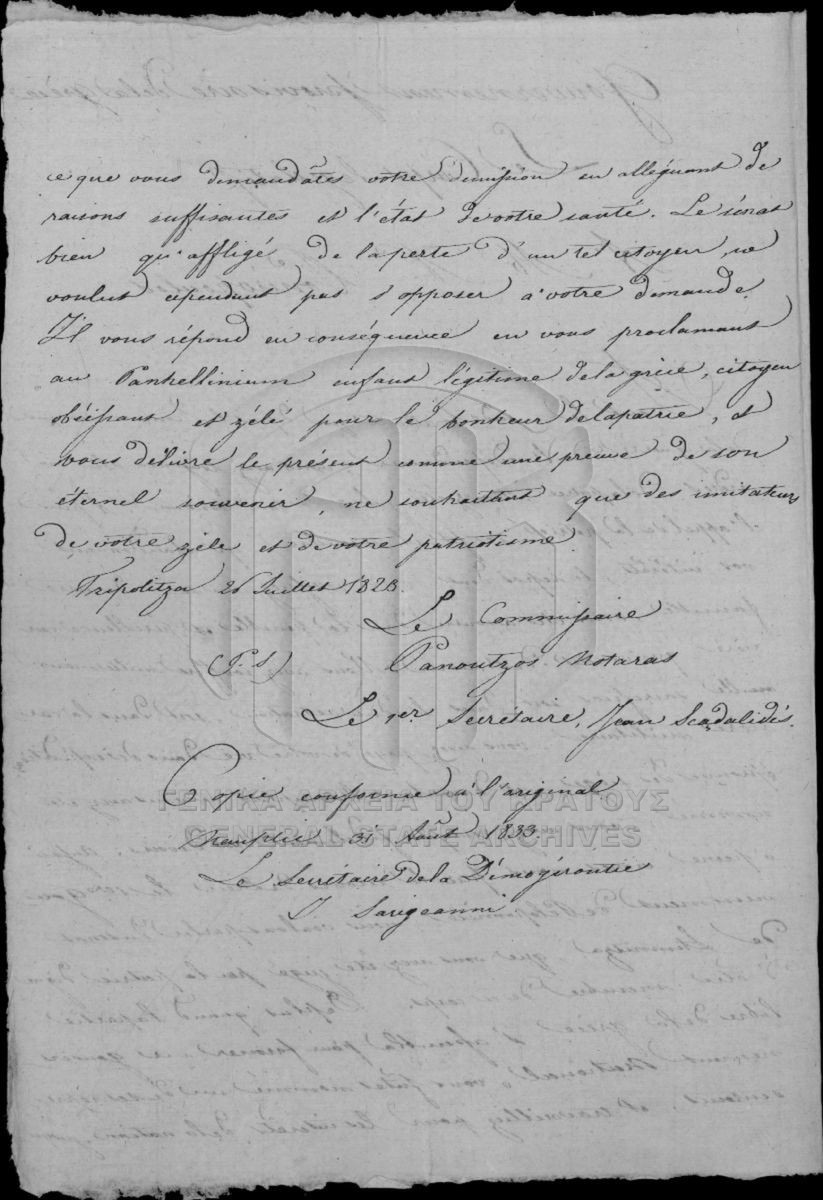 ce que vous demandâtes votre demission en alléguant de
raisons suffisantes et l'état de votre santé. Le sénat
bien qu'affligé de la perte d'un tel citoyen, ne
voulut cependant pas s'opposer à votre demande.
Il vous répond en conséquence en vous proclamant
au Panhellinium enfant légitime de la grèce, citoyen
obéissant et zélé pour le bonheur de la patrie, et
vous délivre le présent comme une preuve de son
éternel souvenir, ne souhaitant que des imitateurs
de votre zèle et de votre patriotisme.
Tripolitza 26 Juillet 1828.
Le Commissaire
Panoutzos Notaras
Le 1er Secrétaire, Jean Scadalidis.
Copie conforme à l'original
Nauplie 31 Août 1833
Le Secrétaire de la Démogérontie
J Sarigeanni
ΓΕΝΙΚΑ ΑΡΧΕΙΑ ΤΟΥ ΚΡΑΤΟΥΣ
GENERAL STATE ARCHIVES